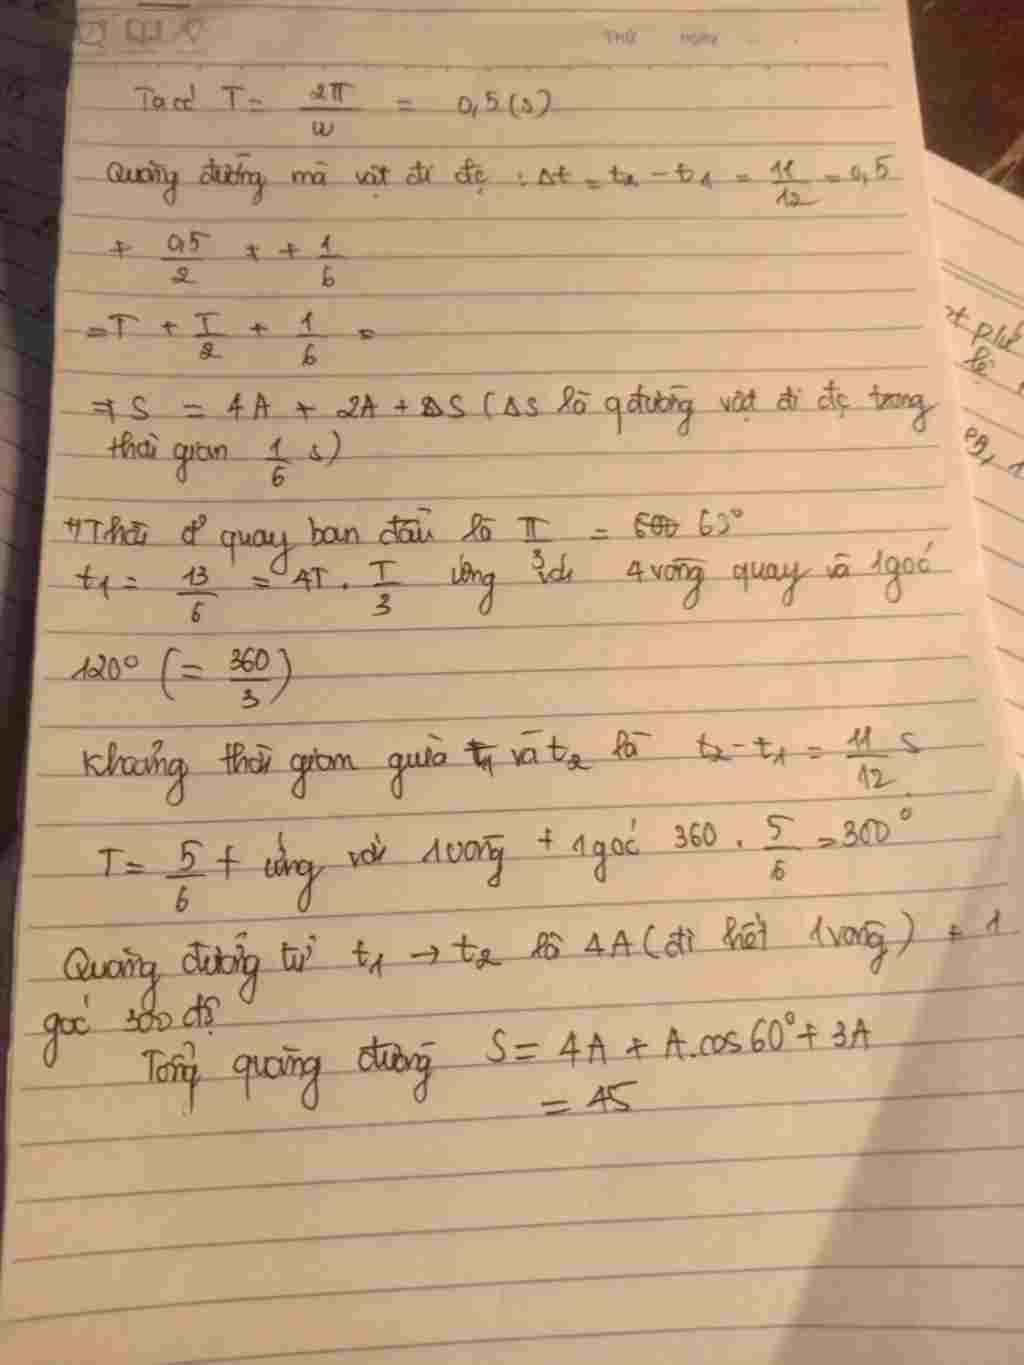 THỨ NGÀY
Ta có T = 2π/ω = 0,5 (s)
Quãng đường mà vật đi đc : Δt = t2 - t1 = 11/12 = 0,5
+ 0,5/2 + + 1/6
= T + T/2 + 1/6 =
⇒ S = 4A + 2A + ΔS (ΔS là qđường vật đi đc trong
thời gian 1/6 s)
quay ban đầu là π/3 = 60°
t1 = 13/6 = 4T . T/3 ứng 4 vòng quay và 1 góc
120° (= 360/3)
Khoảng thời gian giữa t1 và t2 là t2 - t1 = 11/12 s
T = 5/6 ứng với 1 vòng + 1 góc 360 . 5/6 = 300°
Quãng đường từ t1 → t2 là 4A (đi hết 1 vòng) + 1
góc 300 độ
Tổng quãng đường S = 4A + A.cos60° + 3A
= 45